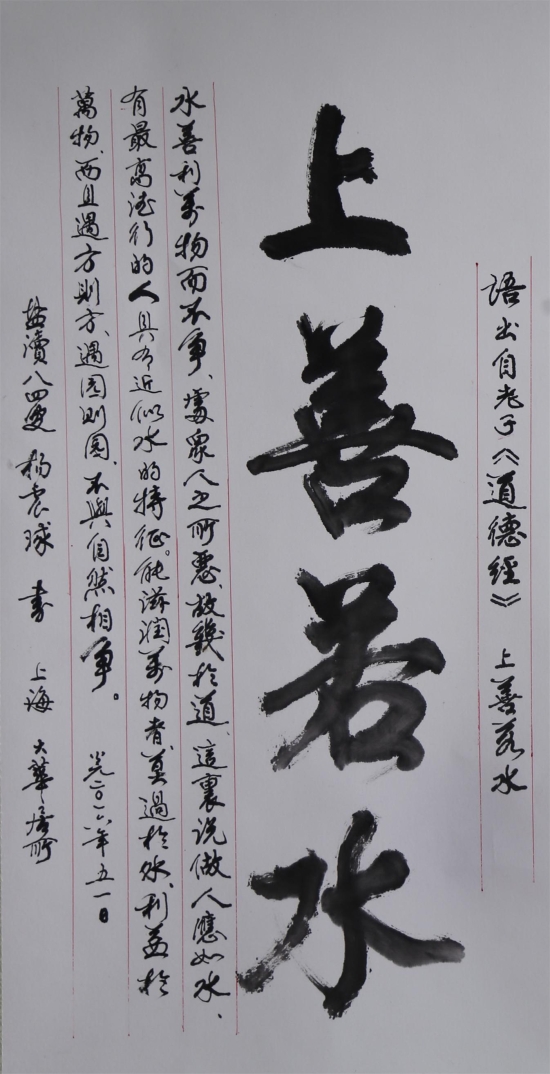 語出自老子《道德經》 上善若水
上善若水
水善利萬物而不爭、處眾人之所惡、故幾於道、這裏说做人應如水、
有最高德行的人具有近似水的特征。能滋润萬物者莫過於水、利益於
萬物、而且遇方則方、遇圆则圆、不與自然相爭。 二〇一六年五一日
盐瀆八四叟 杨宏球 书 上海 大華居所